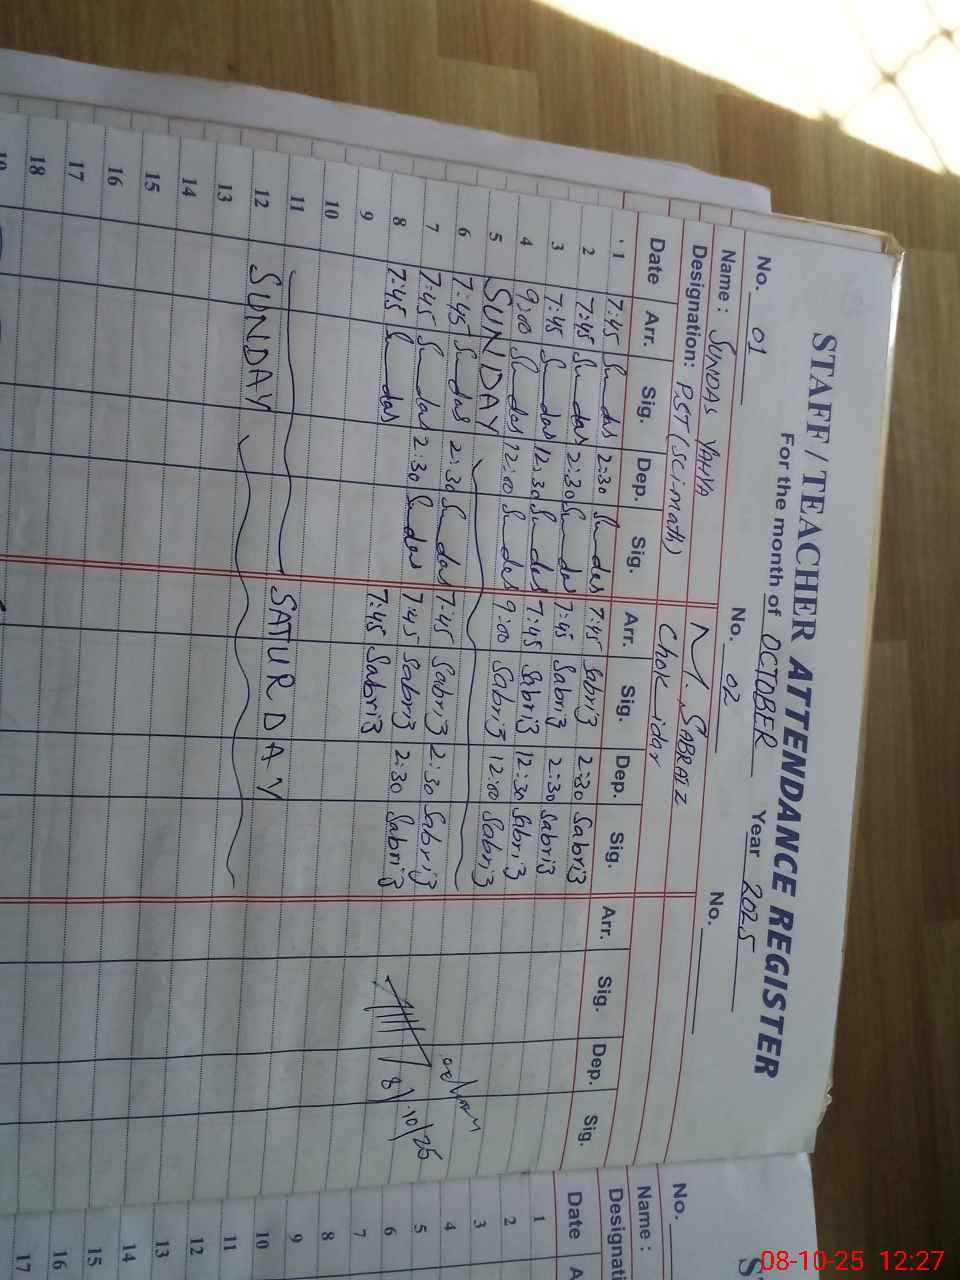 STAFF / TEACHER ATTENDANCE REGISTER
For the month of OCTOBER Year 2025
No. 01 No. 02 No.
Name : SUNDAS YAHYA M. SABRAIZ
Designation: P.ST (Sci-math) Chok idar
Date Arr. Sig. Dep. Sig. Arr. Sig. Dep. Sig. Arr. Sig. Dep. Sig.
1 7:45 Sundas 2:30 Sundas 7:45 Sabri3 2:30 Sabri3
2 7:45 Sundas 2:30 Sundas 7:45 Sabri3 2:30 Sabri3
3 7:45 Sundas 12:30 Sundas 7:45 Sabri3 12:30 Sabri3
4 9:00 Sundas 12:00 Sundas 9:00 Sabri3 12:00 Sabri3
5 SUNDAY
6 7:45 Sundas 2:30 Sundas 7:45 Sabri3 2:30 Sabri3
7 7:45 Sundas 2:30 Sundas 7:45 Sabri3 2:30 Sabri3
8 7:45 Sundas 7:45 Sabri3
8/10/25
9
10
11 SATURDAY
12 SUNDAY
13
14
15
16
17
18
19
No.
Name :
Designati
Date A
1
2
3
4
5
6
7
8
9
10
11
12
13
14
15
16
17
S
08-10-25 12:27